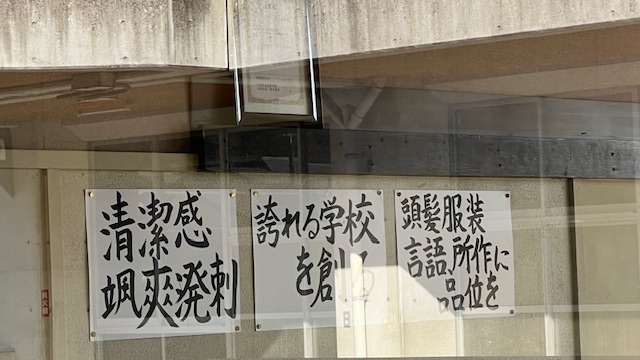 清潔感
颯爽発刺
誇れる学校
を創る
頭髪服装
言語所作に
品位を